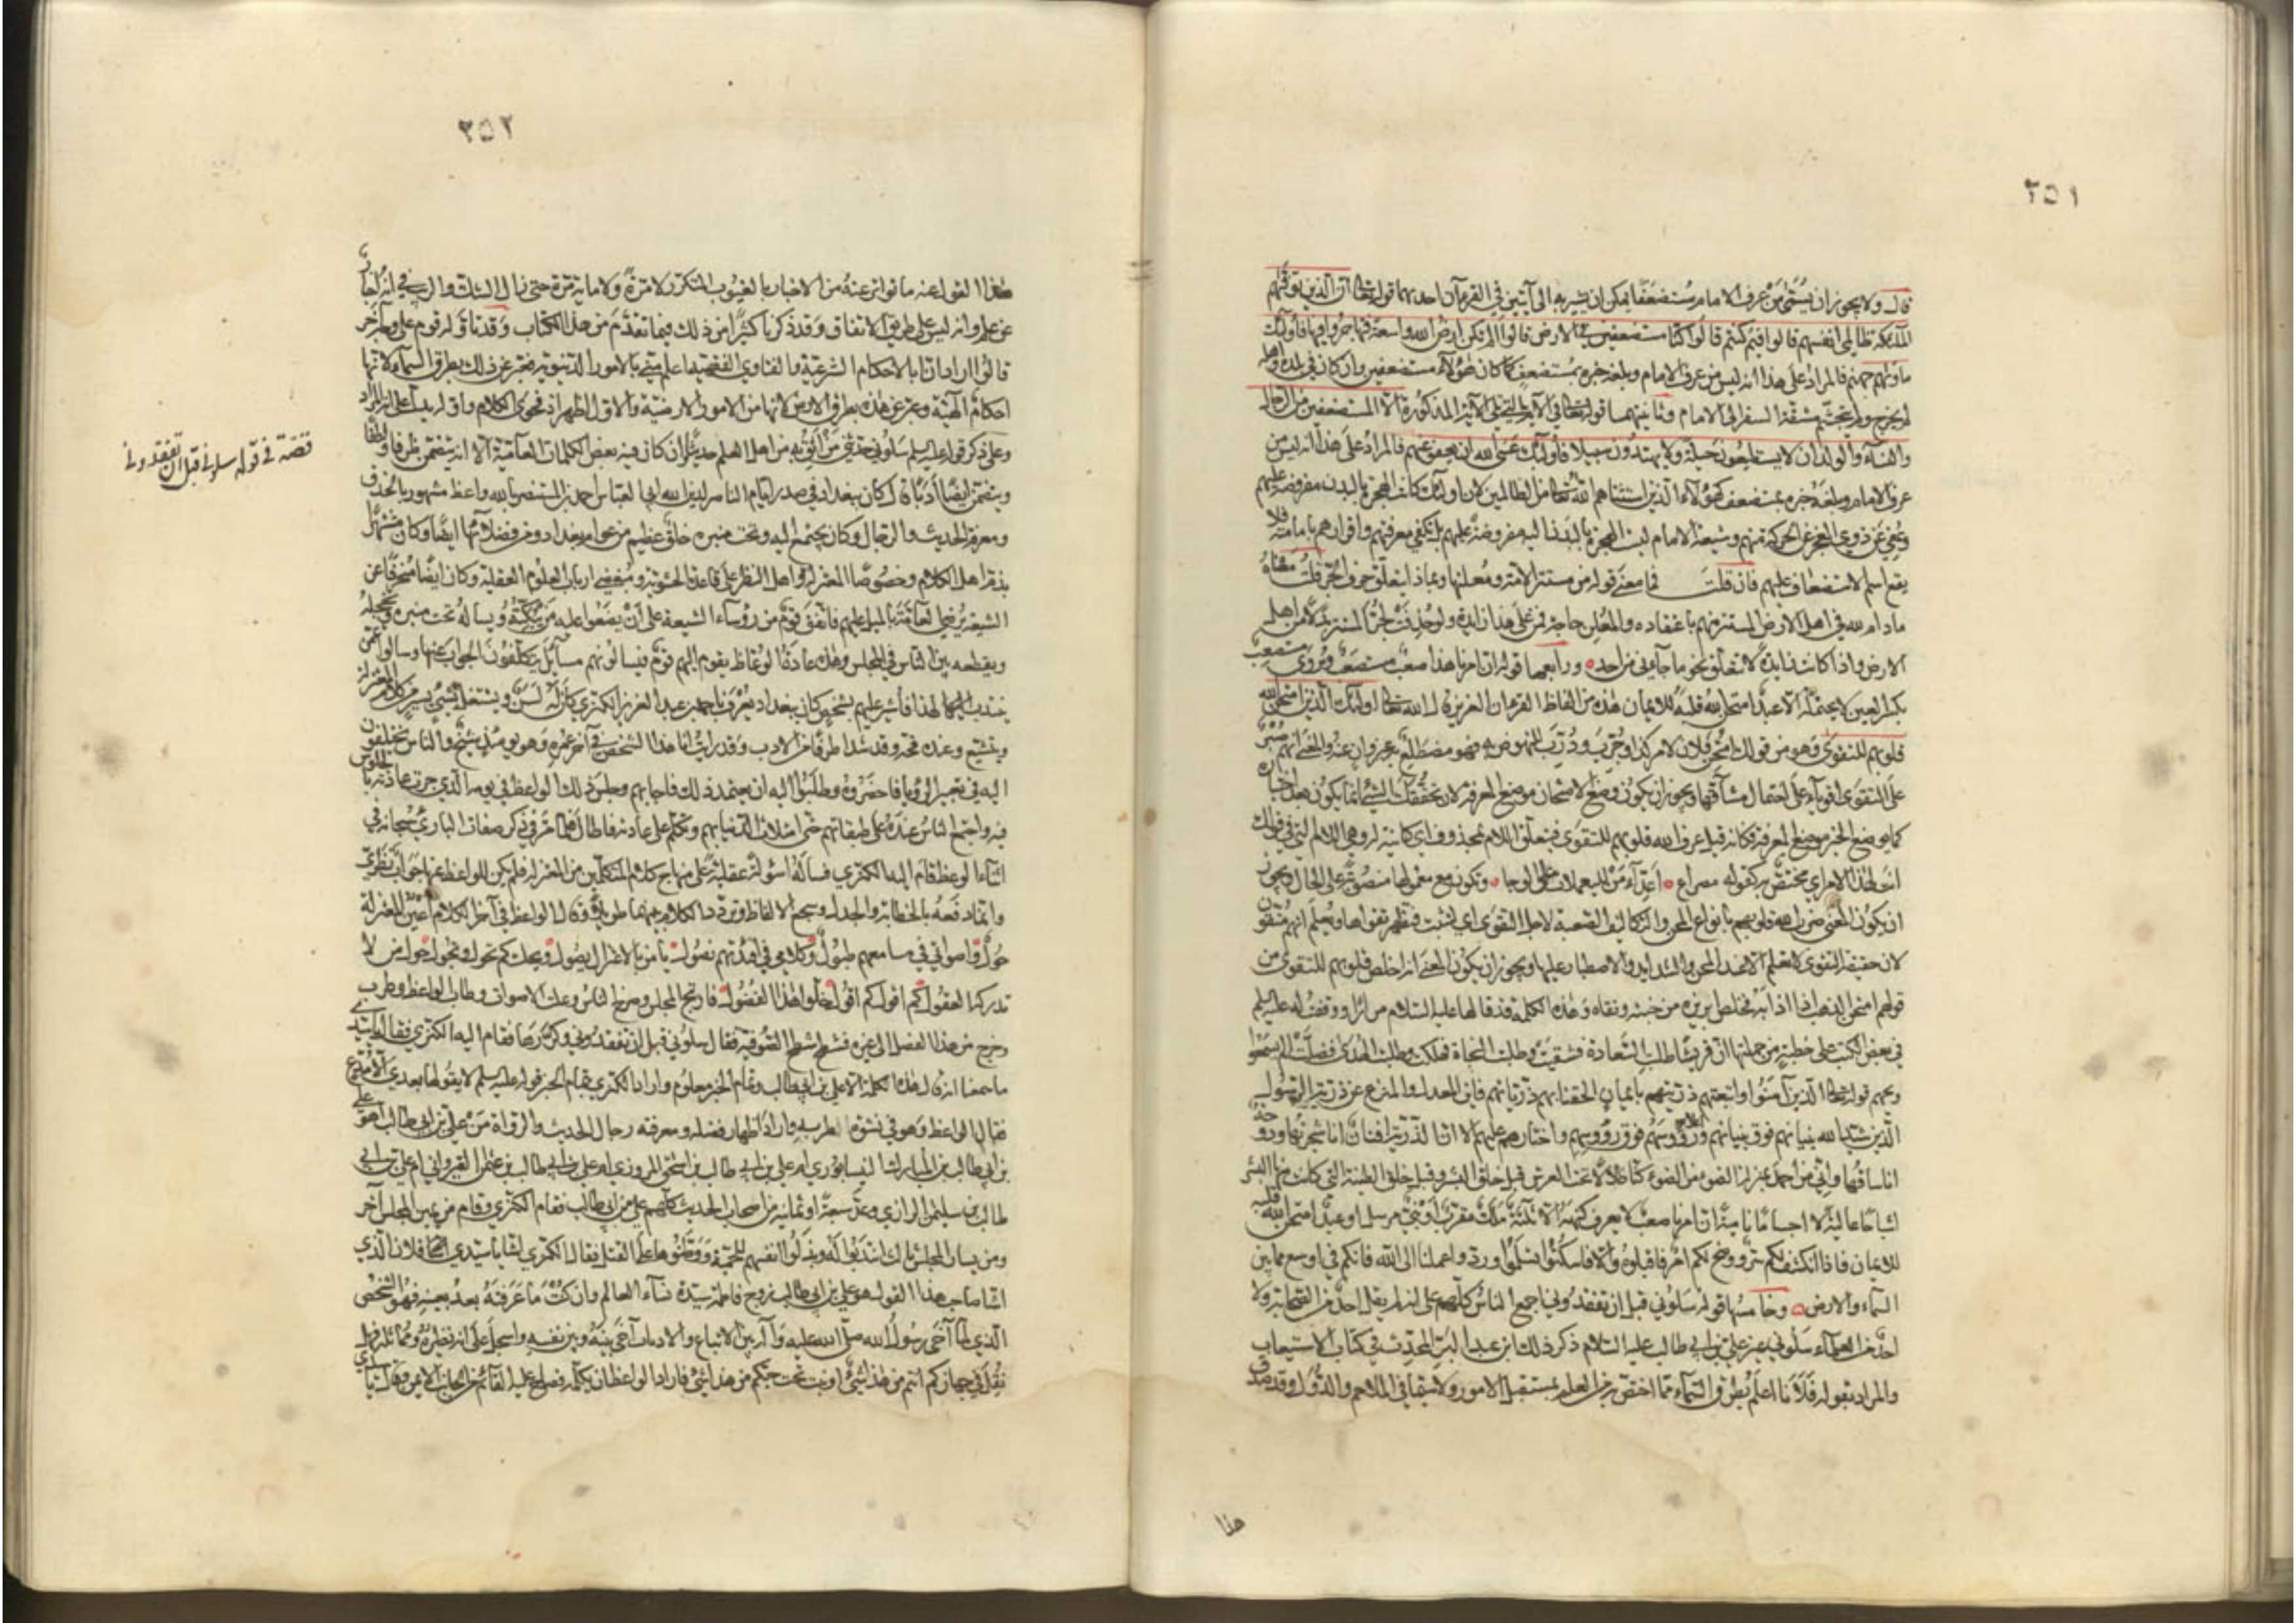 ٢٥١
قال ولا يجوز ان يسمى من عرف الامام مستضعفا يمكن ان يشير به الى آيتين في القرءان احدهما قوله تعالى ان الذين توفيهم
الملائكة ظالمي انفسهم قالوا فيم كنتم قالوا كنا مستضعفين في الارض قالوا الم تكن ارض الله واسعة فتهاجروا فيها فاولئك
ماويهم جهنم فالمراد على هذا انه ليس من عرف الامام وبلغه خبره بمستضعف كما كان هؤلاء مستضعفين وان كان في بلده واهله
لم يخرج ولم يتجشم مشقة السفر الى الامام وثانيهما قوله تعالى في الآية التي تلي الآية المذكورة الا المستضعفين من الرجال
والنساء والولدان لا يستطيعون حيلة ولا يهتدون سبيلا فاولئك عسى الله ان يعفو عنهم فالمراد على هذا انه ليس من
عرف الامام وبلغه خبره بمستضعف كهؤلاء الذين استثناهم الله تعالى من الظالمين لان اولئك كانت الهجرة بالبدن مفروضة عليهم
وعفي عن ذوي العجز عن الحركة منهم وشيعة الامام ليست الهجرة بالبدن اليه مفروضة عليهم بل تكفي معرفتهم واقرارهم بامامته فلا
يقع اسم الاستضعاف عليهم فان قلت فما معنى قوله من مستتر الامة ومعلنها وبماذا يتعلق حرف الجر قلت معناه
ما دام لله في اهل الارض المستتر منهم باعتقاده والمعلن حاجة فمن على هذا زايدة ولو حذفت لجر المستتر بدلا من اهل
الارض واذا كانت زايدة لا تتعلق نحو ما جاءني من احد ورابعها قوله ان امرنا هذا صعب مستصعب ويروى مستصعب
بكسر العين لا يحتمله الا عبد امتحن الله قلبه للايمان هذه من الفاظ القرءان العزيز قال الله تعالى اولئك الذين امتحن الله
قلوبهم للتقوى وهو من قولك امتحن فلان لامر كذا وجرب ودرب للنهوض به فهو مضطلع به غير وان عنه والمعنى انهم صبر
على التقوى اقوياء على احتمال مشاقها ويجوز ان يكون وضع الامتحان موضع المعرفة لان تحققك الشيء انما يكون بعد اختباره
كما يوضع الخبر موضع المعرفة فكانه قيل عرف الله قلوبهم للتقوى فتعلق اللام بمحذوف اي كاينة له وهي اللام التي في قولك
انت لهذا الامر اي مختص به كقوله مصراع اعداء من لليعملات على الوجا وتكون مع معمولها منصوبة على الحال ويجوز
ان يكون المعنى ضرب الله قلوبهم بانواع المحن والتكاليف الصعبة لاجل التقوى اي لتثبت فتظهر تقواها ويعلم انهم متقون
لان حقيقة التقوى لا تعلم الا عند المحن والشدايد والاصطبار عليها ويجوز ان يكون المعنى انه اخلص قلوبهم للتقوى من
قولهم امتحن الذهب اذا اذابه فخلص ابريزه من خبثه ونقاه وهذه الكلمة قد قالها عليه السلام مرارا ووقفت له عليه السلم
في بعض الكتب على خطبة من جملتها ان قريشا طلبت السعادة فشقيت وطلبت النجاة فهلكت وطلبت الهدى فضلت الم يسمعوا
ويحهم قوله تعالى الذين آمنوا واتبعتهم ذريتهم بايمان الحقنا بهم ذرياتهم فاين المعدل والمنزع عن ذرية الرسول
الذين شيد الله بنيانهم فوق بنيانهم واعلى رؤوسهم فوق رؤوسهم واختارهم عليهم الا ان الذرية افنان انا شجرتها ودوحة
انا ساقها واني من احمد بمنزلة الضوء من الضوء كنا ظلالا تحت العرش قبل خلق البشر وقبل خلق الطينة التي كانت منها البشر
اشباحا عالية لا اجساما نامية ان امرنا صعب لا يعرف كنهه الا ثلثة ملك مقرب او نبي مرسل او عبد امتحن الله قلبه
للايمان فاذا انكشف لكم سر ووضح لكم امر فاقبلوه والا فاسكتوا تسلموا وردوا علمنا الى الله فانكم في اوسع مما بين
السماء والارض وخامسها قوله سلوني قبل ان تفقدوني اجمع الناس كلهم على انه لم يقل احد من الصحابة ولا
احد من العلماء سلوني غير علي بن ابي طالب عليه السلام ذكر ذلك ابن عبد البر المحدث في كتاب الاستيعاب
والمراد بقوله فلانا اعلم بطرق السماء مما اختص به من العلم بمستقبل الامور ولا سيما في الملاحم والدول وقد صدق
هذا
٢٥٢
هذا القول عنه ما تواتر عنه من الاخبار بالغيوب المتكررة لا مرة ولا ماية مرة حتى زال الشك والريب في انه اخبار
عن علم وانه ليس على طريق الاتفاق وقد ذكرنا كثيرا من ذلك فيما تقدم من هذا الكتاب وقد تاوله قوم على وجه آخر
قالوا اراد انا بالاحكام الشرعية والفتاوي الفقهية اعلم مني بالامور الدنيوية فعبر عن تلك بطرق السماء لانها
احكام الهية وعبر عن هذه بطرق الارض لانها من الامور الارضية والاول اظهر لان فحوى الكلام واوله يدل على انه المراد
وعلى ذكر قوله عليه السلم سلوني حدثني من اثق به من اهل العلم حديثا وان كان فيه بعض الكلمات العامية الا انه يتضمن ظرفا ولطفا
ويتضمن ايضا ادبا قال كان ببغداد في صدر ايام الناصر لدين الله ابي العباس احمد بن المستضيء بالله واعظ مشهور بالحذق
ومعرفة الحديث والرجال وكان يجتمع اليه وتحت منبره خلق عظيم من عوام بغداد ومن فضلائها ايضا وكان مشتهرا
بذم اهل الكلام وخصوصا المعتزلة واهل النظر على قاعدة الحشوية ومبغضي ارباب العلوم العقلية وكان ايضا منحرفا عن
الشيعة يرضي العامة بالميل عليهم فاتفق قوم من رؤساء الشيعة على ان يضعوا عليه من يبكته ويساله تحت منبره ويخجله
ويفضحه بين الناس في المجلس وهذه عادة الوعاظ يقوم اليهم قوم فيسالونهم مسائل يتكلفون الجواب عنها وسالوا عمن
ينتدب لهذا فاشير عليهم بشخص كان ببغداد يعرف باحمد بن عبد العزيز الكزي كان له لسن ويشتغل بشيء يسير من كلام المعتزلة
ويتشيع وعنده قحة وقد شدا طرفا من الادب وقد رايت انا هذا الشخص في آخر عمره وهو يومئذ شيخ والناس يختلفون
اليه في تعبير الرؤيا فاحضروه وطلبوا اليه ان يعتمد ذلك فاجابهم وجلس ذلك الواعظ في يومه الذي جرت عادته بالجلوس
فيه واجتمع الناس عنده على طبقاتهم حتى امتلات الدنيا بهم وتكلم على عادته فاطال فلما مر في ذكر صفات الباري سبحانه في
اثناء الوعظ قام اليه الكزي فساله اسولة عقلية على منهاج كلام المتكلمين من المعتزلة فلم يكن للواعظ عنها جواب نظري
وانما دفعه بالخطابة والجدل وسجع الالفاظ وتردد الكلام بينهما طويلا وقال الواعظ في آخر الكلام اعين المعتزلة
حول واصواتي في مسامعهم طبول وكلامي في افئدتهم نصول يا من بالاعتزال يصول ويحك كم تحوم وتجول حول من لا
تدركه العقول كم اقول كم اقول خلوا هذا الفضول فارتج المجلس وصرخ الناس وعلت الاصوات وطاب الواعظ وطرب
وخرج من هذا الفصل الى غيره فشطح شطح الصوفية فقال سلوني قبل ان تفقدوني وكررها فقام اليه الكزي فقال يا سيدي
ما سمعنا انه قال هذه الكلمة الا علي بن ابي طالب وتمام الخبر معلوم واراد الكزي بتمام الخبر قوله عليه السلم لا يقولها بعدي الا مدع
فقال الواعظ وهو في نشوة طربه واراد اظهار فضله ومعرفته رجال الحديث والرواة من علي بن ابي طالب اهو علي
بن ابي طالب بن المبارك النيسابوري ام علي بن ابي طالب بن اسحق المروزي ام علي بن ابي طالب بن عثمن القيرواني ام علي بن ابي
طالب بن سليمن الرازي وعد سبعة او ثمانية من اصحاب الحديث كلهم علي بن ابي طالب فقام الكزي وقام من يمين المجلس آخر
ومن يسار المجلس ثالث انتدبوا له وبذلوا انفسهم للحمية ووطنوها على القتل فقال الكزي اشا يا سيدي فلان الدين اشا
اشا صاحب هذا القول هو علي بن ابي طالب زوج فاطمة سيدة نساء العالم وان كنت ما عرفته بعد بعينه فهو الشخص
الذي لما آخى رسول الله صلى الله عليه وآله بين الاتباع والاذناب آخى بينه وبين نفسه واسجل على انه نظيره ومماثله فهل
نقل في جهازكم انتم من هذا شيء او نبت تحت خبكم من هذا شيء فاراد الواعظ ان يكلمه فصاح عليه القائم من الجانب الايمن وقال يا سيدي
قصة في قوله سلوني قبل ان تفقدوني